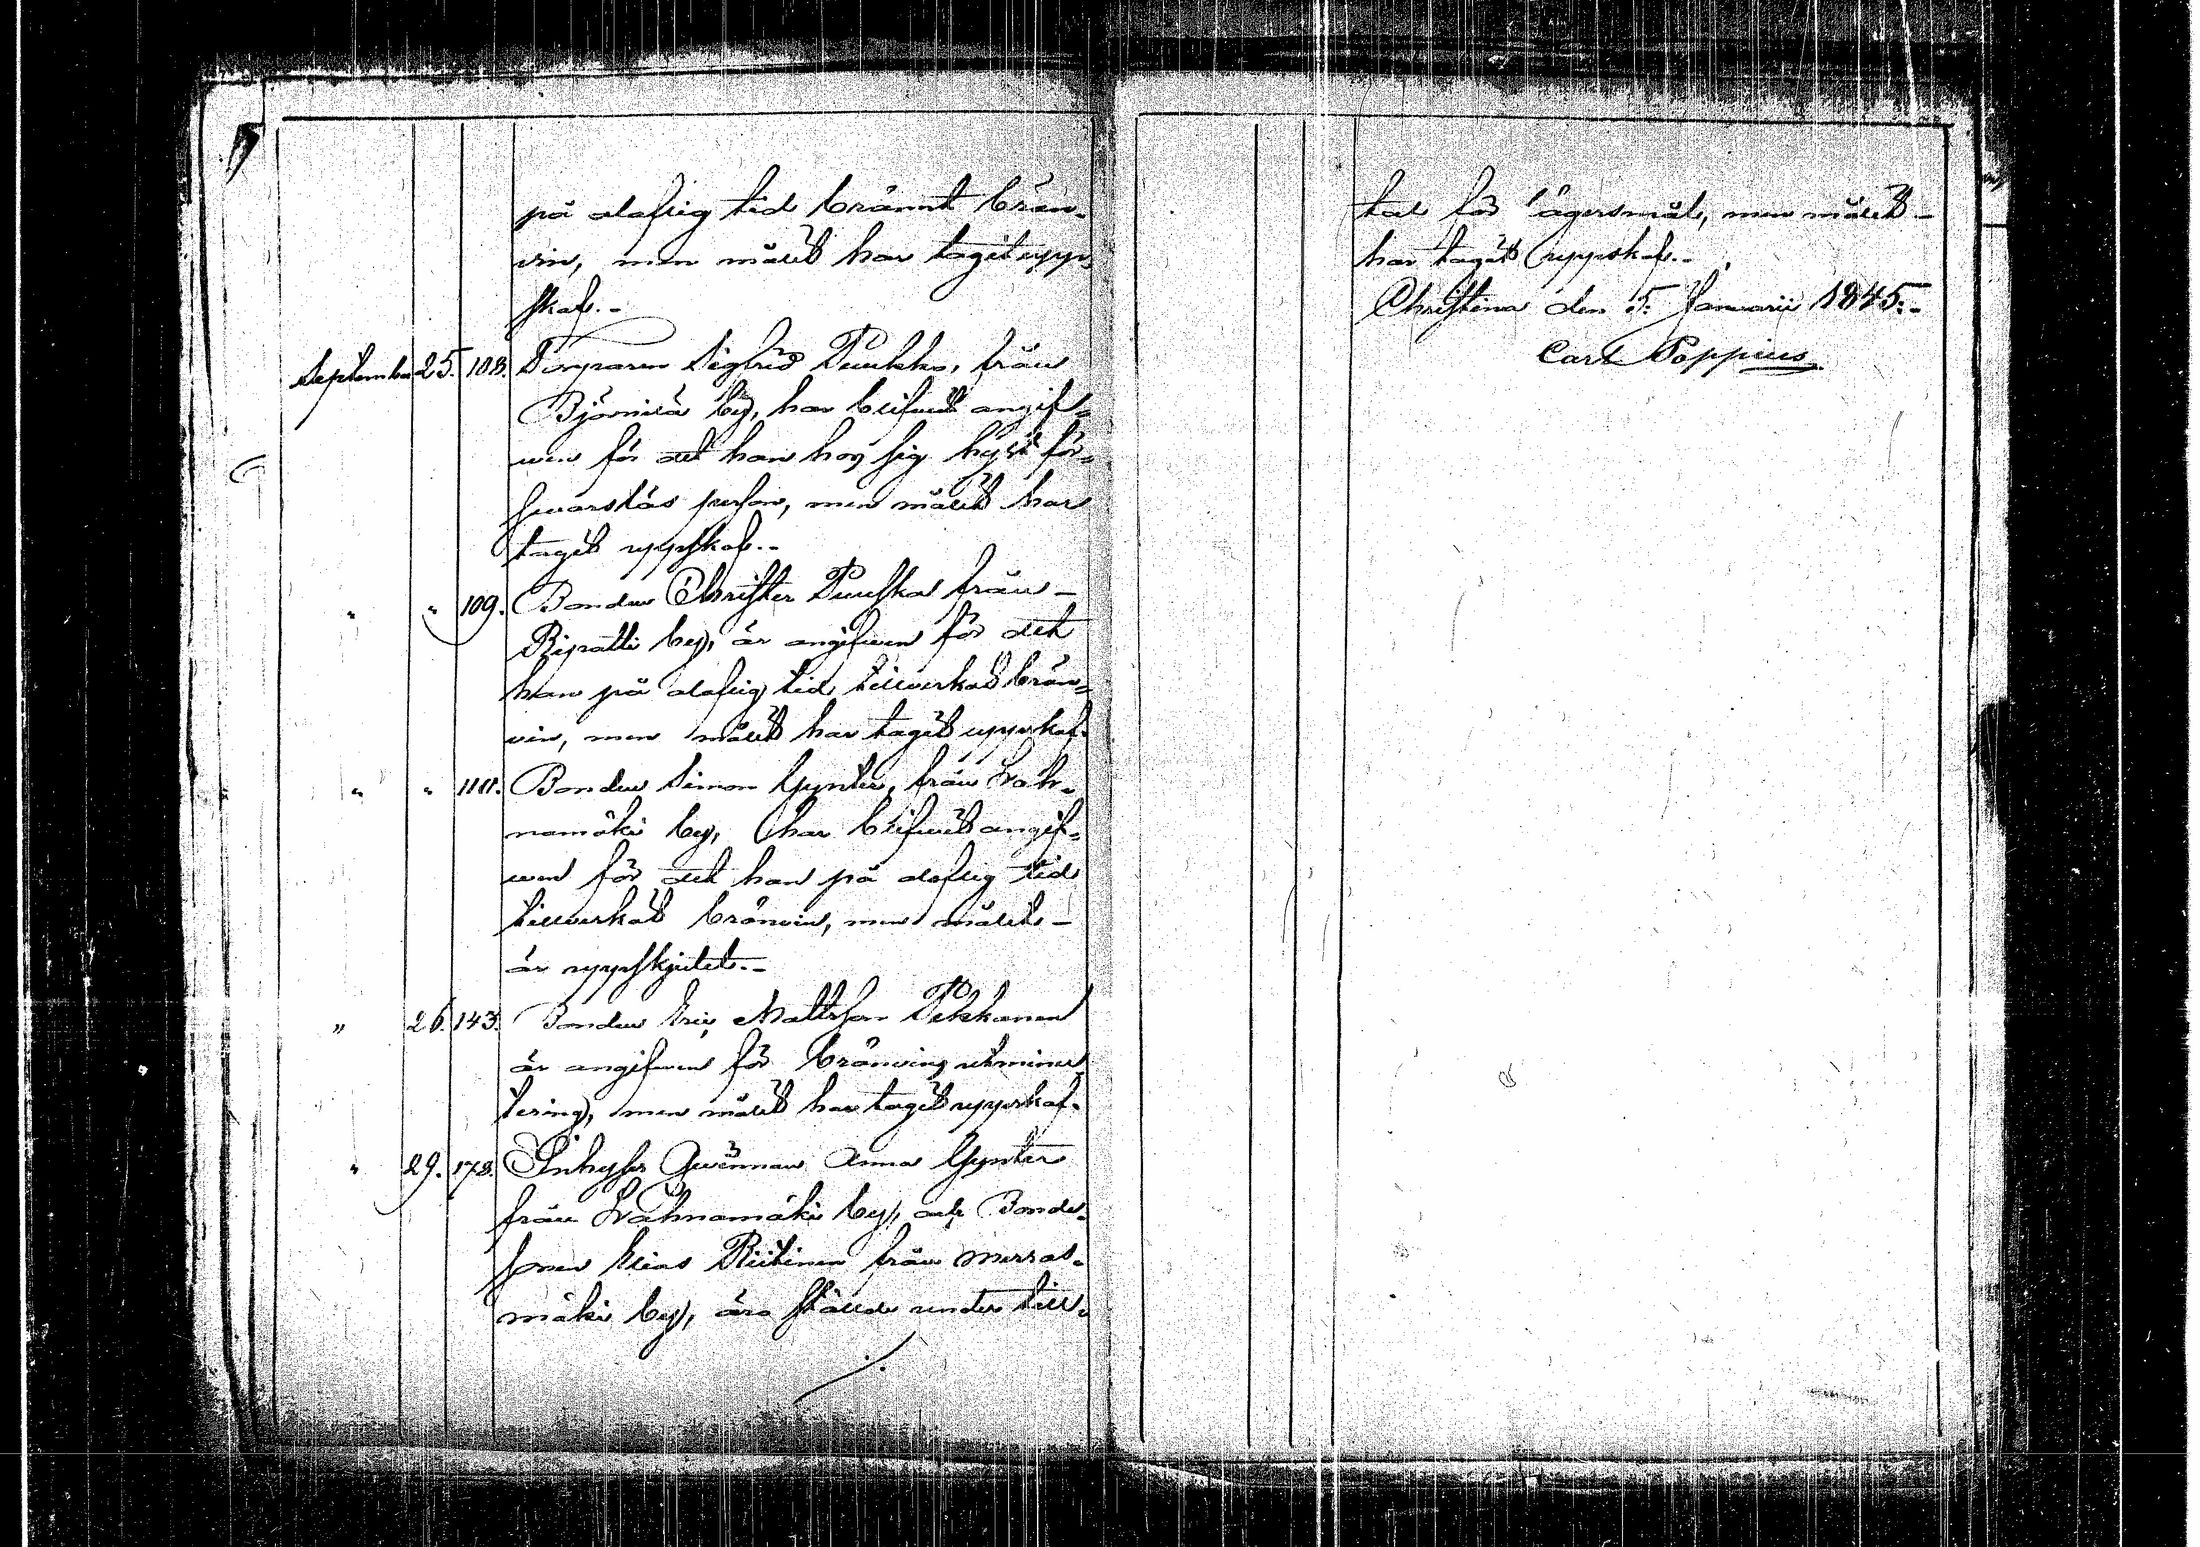 på olaflig tid brännt brän-
vin, men målet har tagit upp-
skof.-
September 25. 108. Torparen Sigfrid Puukko, från
Björnilä by, har blifvit angif-
ven för det han hos sig hyst för-
svarslös person, men målet har
tagit uppskof.-
" " 109. Bonden Christer Puuska från
Ripatti by, är angifven för det
han på olaflig tid tillverkat brän-
vin, men målet har tagit uppskof.
" " 110. Bonden Simon Gynter, från Lah-
namäki by, har blifvit angif-
ven för det han på olaflig tid
tillverkat bränvin, men målet
är uppskjutet.-
" 26. 143. Bonden Eric Mattsson Pekkanen
är angifven för bränvins utminu-
tering, men målet har tagit uppskof.
" 29. 178. Inhyses Qvinnan Anna Gynter
från Lahnamäki by, och Bonde-
sonen Elias Riitinen från
mäki by, äro ställde under till-
tal för lägersmål, men målet
har tagit uppskof.-
Christina den 5. Januarii 1845.-
Carl Poppius